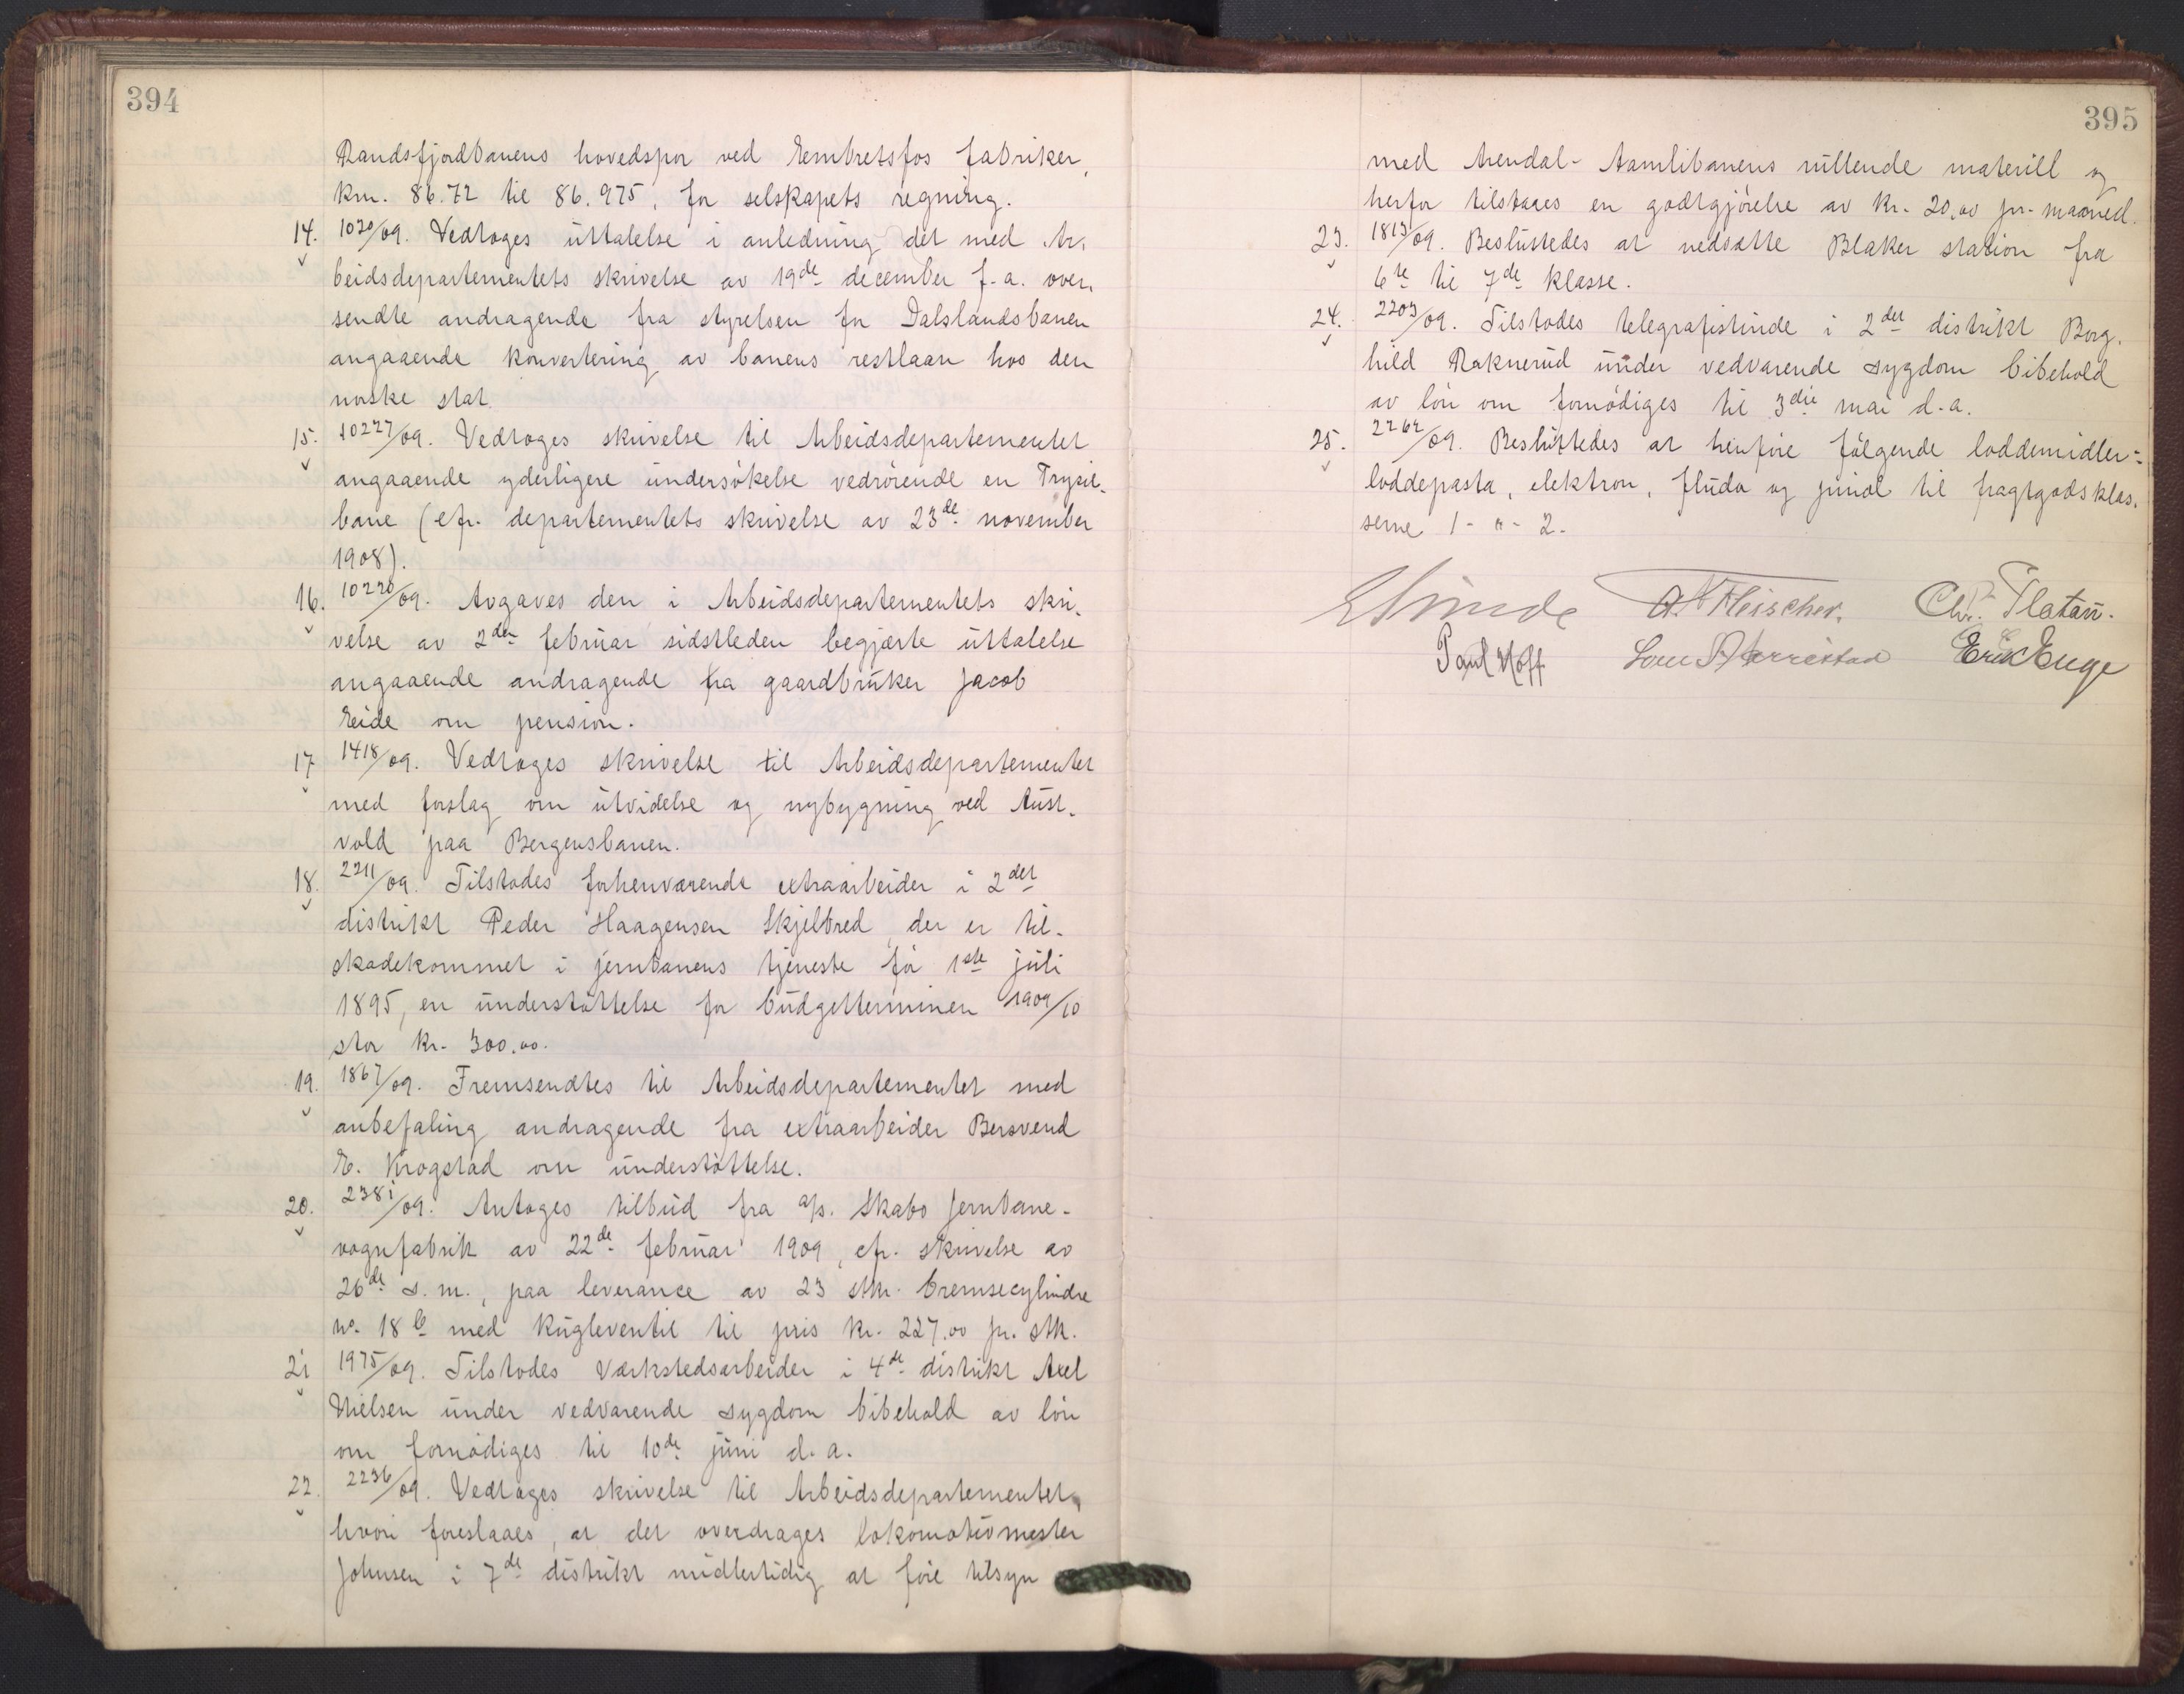 394
Randsfjordbanens hovedspor ved Embretsfos fabriker,
km. 86.72 til 86.975, for selskapets regning.
14. 1030/09. Vedtoges uttalelse i anledning det med Ar-
beidsdepartementets skrivelse av 19de december f.a. over-
sendte andragende fra styrelsen for Dalslandsbanen
angaaende konvertering av banens restlaan hos den
norske stat.
15. 10227/09. Vedtoges skrivelse til Arbeidsdepartementet
angaaende yderligere undersøkelse vedrørende en Trysil-
bane (cfr. departementets skrivelse av 23de november
1908).
16. 10220/09. Avgaves den i Arbeidsdepartementets skri-
velse av 2den februar sidstleden begjærte uttalelse
angaaende andragende fra gaardbruker Jacob
Eide om pension.
17 1418/09. Vedtoges skrivelse til Arbeidsdepartementet
med forslag om utvidelse og nybygning ved Aust-
vold paa Bergensbanen.
18. 2211/09. Tilstodes forhenværende extraarbeider i 2det
distrikt Peder Haagensen Skjelbred, der er til-
skadekommet i jernbanens tjeneste før 1ste juli
1895, en understøttelse for budgetterminen 1909/10
stor kr. 300.00.
19. 1867/09. Fremsendtes til Arbeidsdepartementet med
anbefaling andragende fra extraarbeider Bersvend
E. Krogstad om understøttelse.
20. 2381/09. Antoges tilbud fra a/s. Skabo Jernbane-
vognfabrik av 22de februar 1909, cfr. skrivelse av
26de s.m., paa leverance av 23 stk. bremsecylindre
no. 18 b med kugleventil til pris kr. 227.00 pr. stk.
21 1975/09. Tilstodes værkstedsarbeider i 4de distrikt Axel
Nielsen under vedvarende sygdom bibehold av løn
om fornødiges til 10de juni d.a.
22. 2236/09. Vedtoges skrivelse til Arbeidsdepartementet,
hvori foreslaaes, at det overdrages lokomotivmester
Johnsen i 7de distrikt midlertidig at føre tilsyn
395
med Arendal-Aamlibanens rullende materiell og
herfor tilstaaes en godtgjørelse av kr. 20.00 pr. maaned.
23. 1813/09. Besluttedes at nedsætte Blaker station fra
6te til 7de klasse.
24. 2203/09. Tilstodes telegrafistinde i 2det distrikt Borg-
hild Raknerud under vedvarende sygdom bibehold
av løn om fornødiges til 3die mai d.a.
25. 2262/09. Besluttedes at henføre følgende loddemidler:
loddepasta, elektron, fludo og pinol til fragtgodsklas-
serne 1 - " - 2.
ESunde A. Fleischer. Chr. Platou.
Paul Hoff Lars S. Harrestad Erik Enge